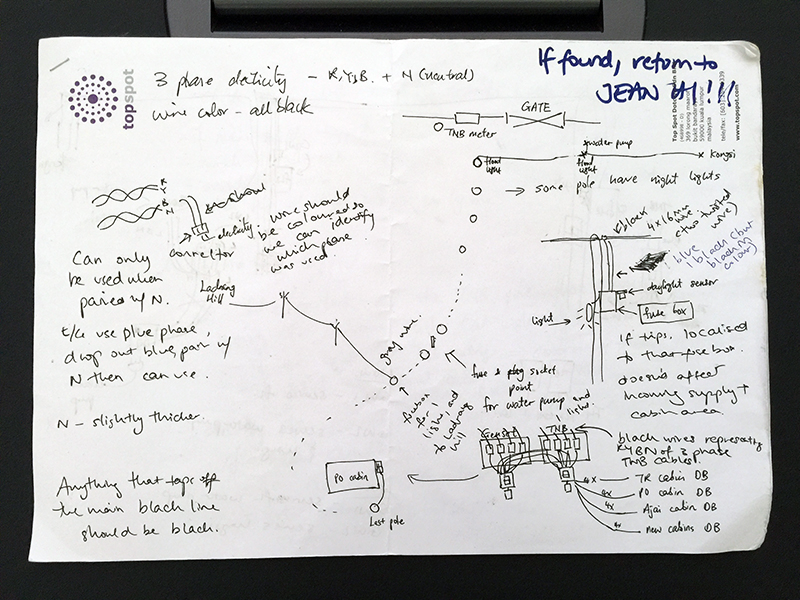 topspot
3 phase electricity - R,Y,B. + N (neutral)
wire color - all black
If found, return to
JEAN
Top Spot
bukit bandar
59100 kuala lumpur
malaysia
www.topspot.com
GATE
TNB meter
flood light
water pump
flood light
Kongsi
→ some pole have night lights
R
Y
B
N
electricity
connector
wire should
be coloured so
we can identify
which phase
was used.
Can only
be used when
paired w/ N.
Ladang
Hill
use blue phase,
drop out blue, pair w/
N then can use.
N - slightly thicker.
Anything that taps off
the main black line
should be black.
gray wire
fuse box
for 1
light, and
to Ladang
hill
fuse & plug socket
point
for water pump and
light.
black
4 x 16mm
wire
(two twisted
wire)
Live
1 black (but
daylight sensor
fuse box
light
If trips, localised
to that fuse box.
doesn't affect
incoming supply +
cabin area.
PO cabin
Last pole
Genset
TNB
black wires representing
RYBN of 3 phase
TNB cables.
4x TR cabin DB
4x PO cabin DB
4x Ajai cabin DB
4x new cabins DB